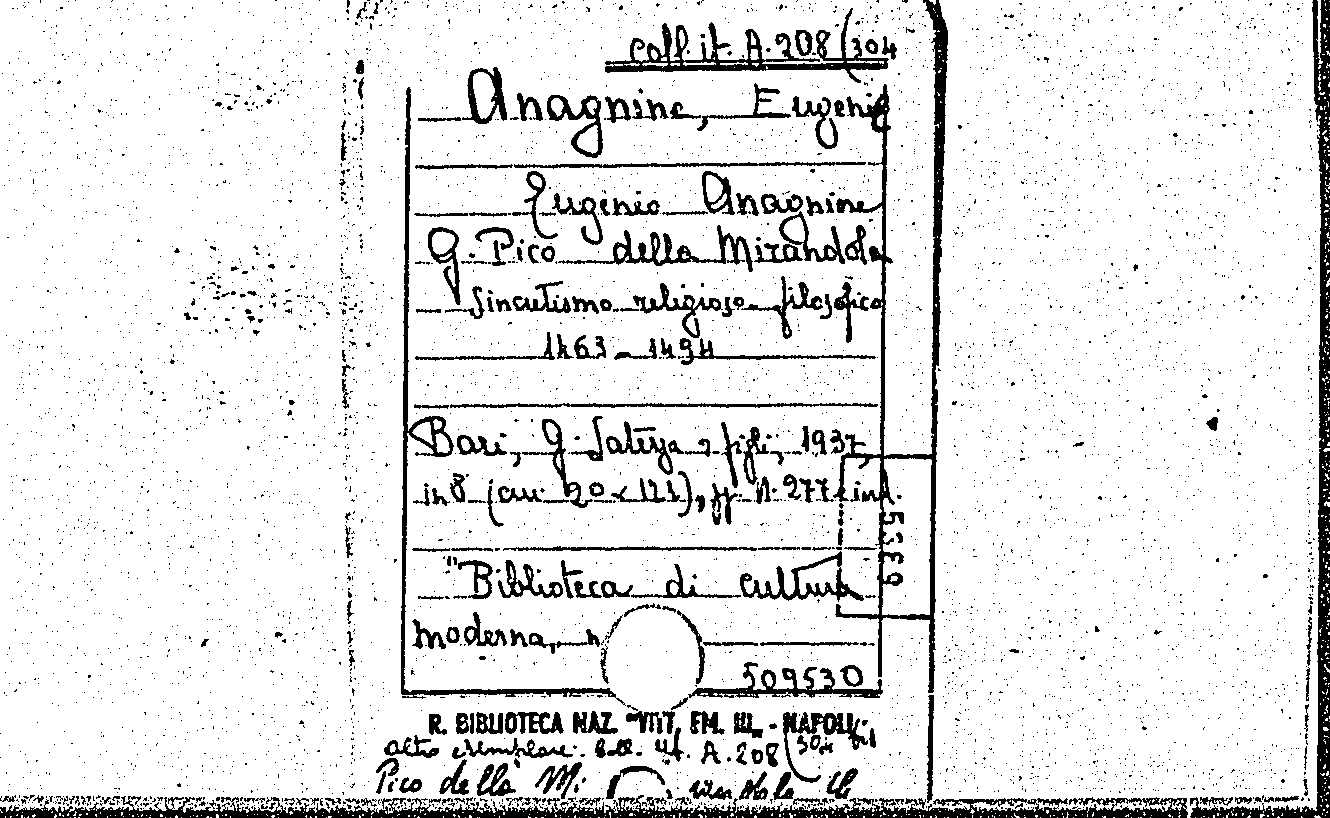 Coll. it. A. 208 (304
Anagnine, Eugenio
Eugenio Anagnine
G. Pico della Mirandola
Sincretismo religioso filosofico
1463 - 1494
Bari, G. Laterza e figli, 1937,
in 8° (cm. 20 x 12½), pp. VI. 277 + ind.
5359
"Biblioteca di cultura
moderna, n
509530
R. BIBLIOTECA NAZ. "VITT. EM. III" - NAPOLI
altro esemplare. Coll. it. A. 208 (304 bis
Pico della Mi randola